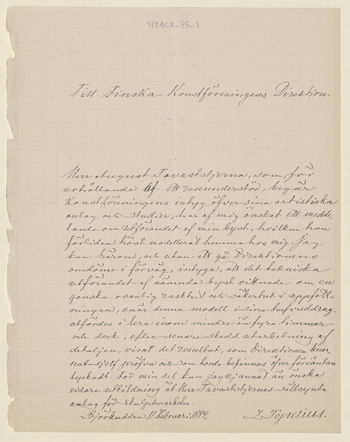 Till Finska Konstföreningens Direktion.
Herr August Tavaststjerna, som för
erhållande af ett reseunderstöd, begär
Konstföreningens intyg öfver sina artistiska
anlag och studier, har af mig önskat ett medde-
lande om utförandet af min byst, hvilken han
förliden höst modellerat hemma hos mig. Jag
kan härom, och utan att gå Direktionens
omdöme i förväg, intyga, att det tekniska
utförandet af nämnda byst vittnade om en
ganska ovanlig raskhet och säkerhet i uppfatt-
ningen, enär denna modell i sina hufvuddrag
utfördes i lera inom mindre än fyra timmar
och dock, efter senare skedd utarbetning af
detaljen, visat det resultat, som Direktionen kun-
nat sjelf pröfva och som torde befinnas öfver förväntan
lyckadt. För min del kan jag ej annat än önska
vidare utbildning åt Herr Tavaststjernas
anlag för skulpturverken.
Björkudden 11 Februari 1889.
Z. Topelius.